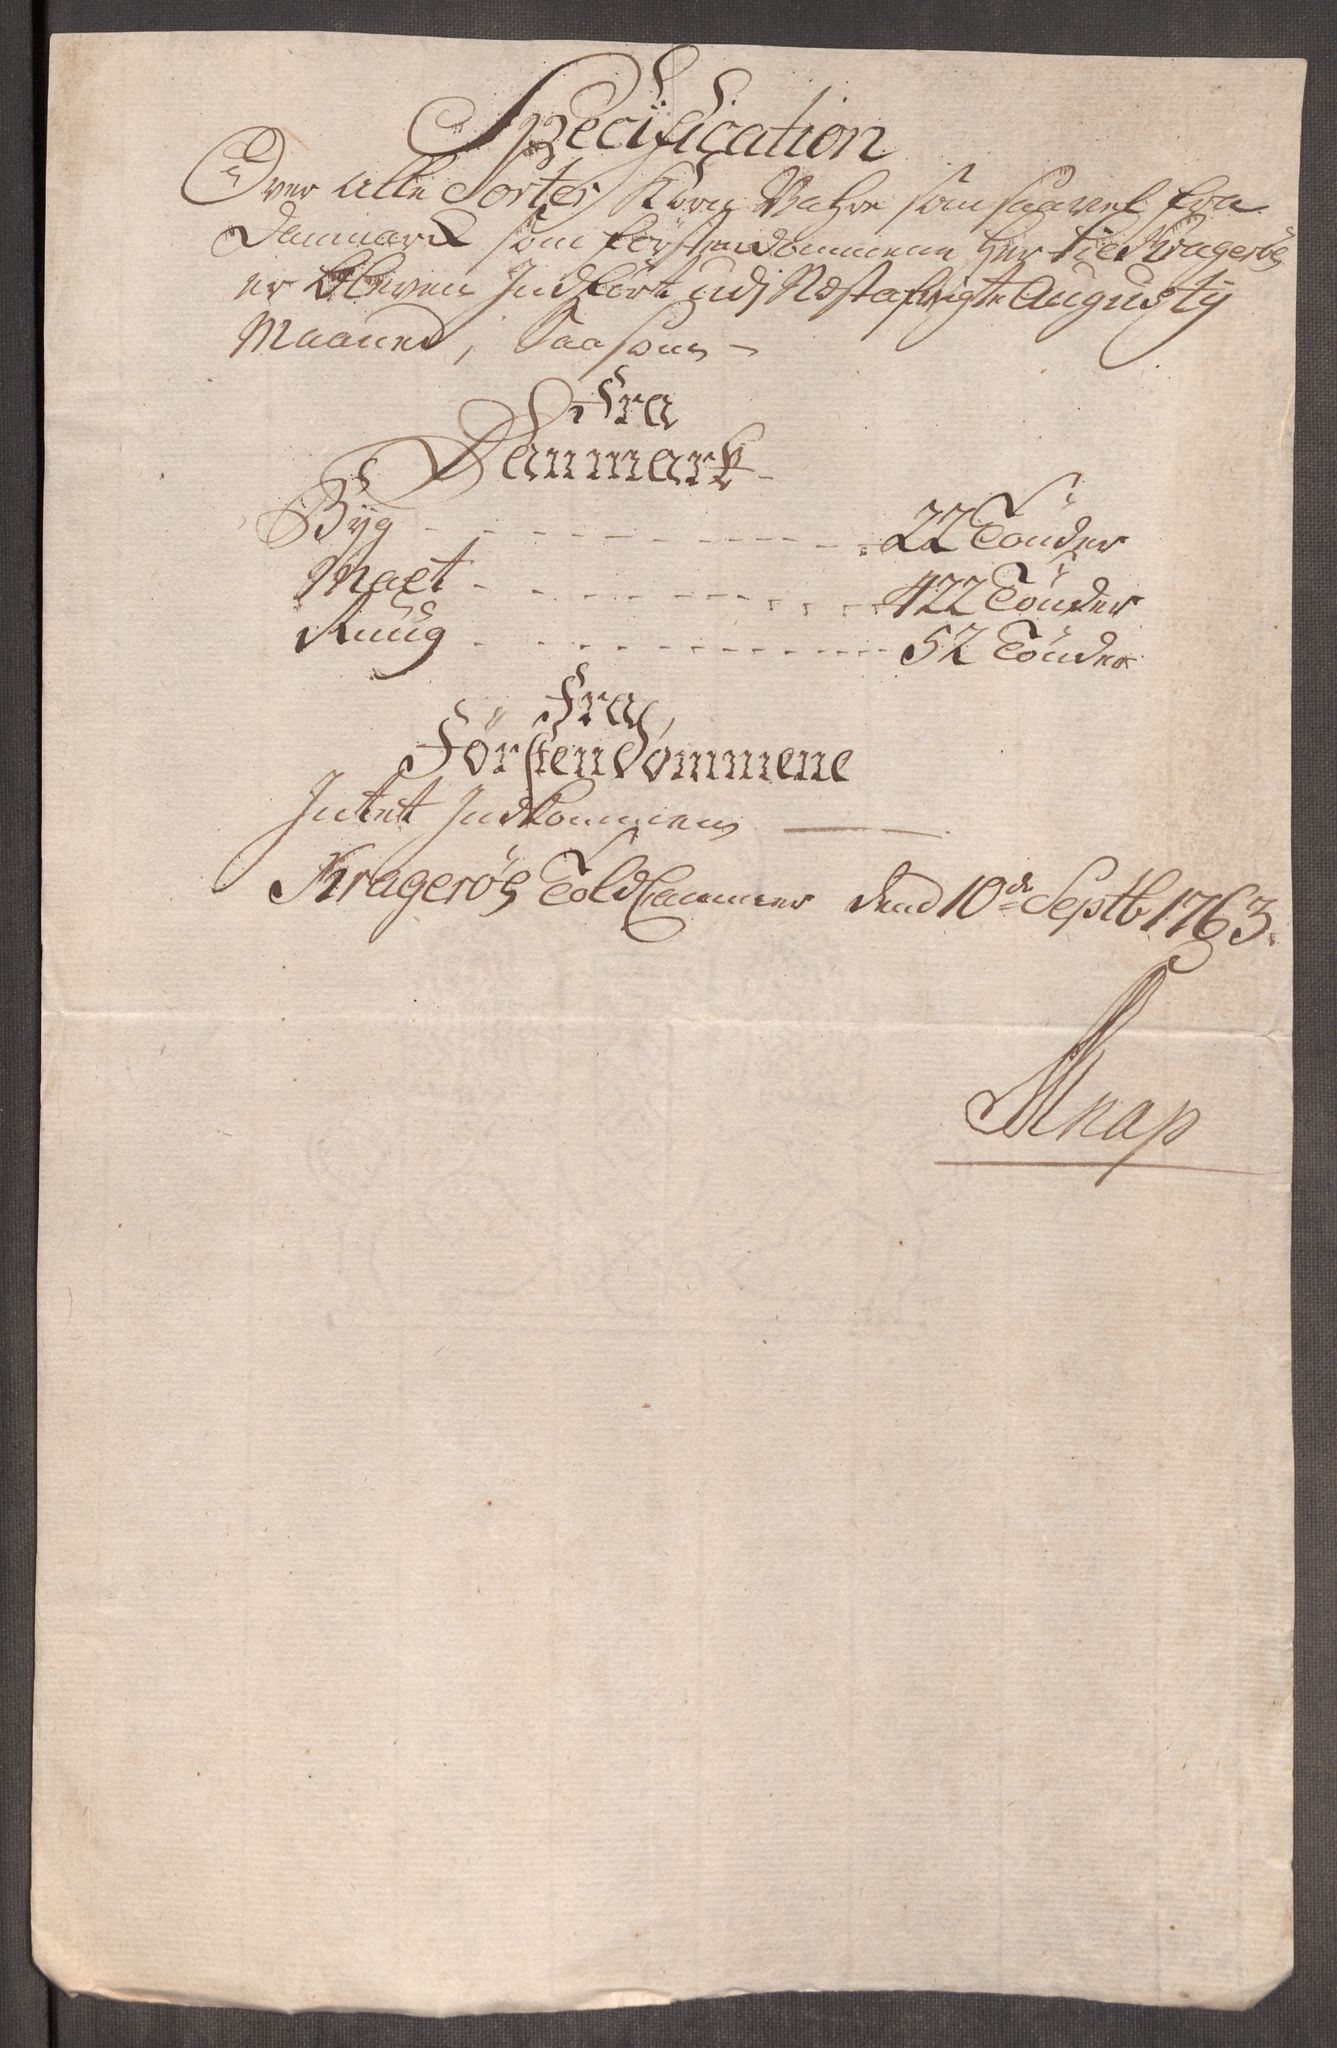 Specification
Over alle Sorter Korn Vahre som saavel fra
Danmark som Förstendommene her til Kragerøe
er bleven Indført udj Næstafvigte Augusty
Maaned, Saasom –
Fra
Danmark –
Byg - - - - - - - - - - 22 Tönder
Malt - - - - - - - - - - 422 Tönder
Ruug - - - - - - - - - - 52 Tönder
Fra
Förstendommene
Intet Indkommen ———
Krageröe Told Cammer dend 10de Septb 1763.
Knap